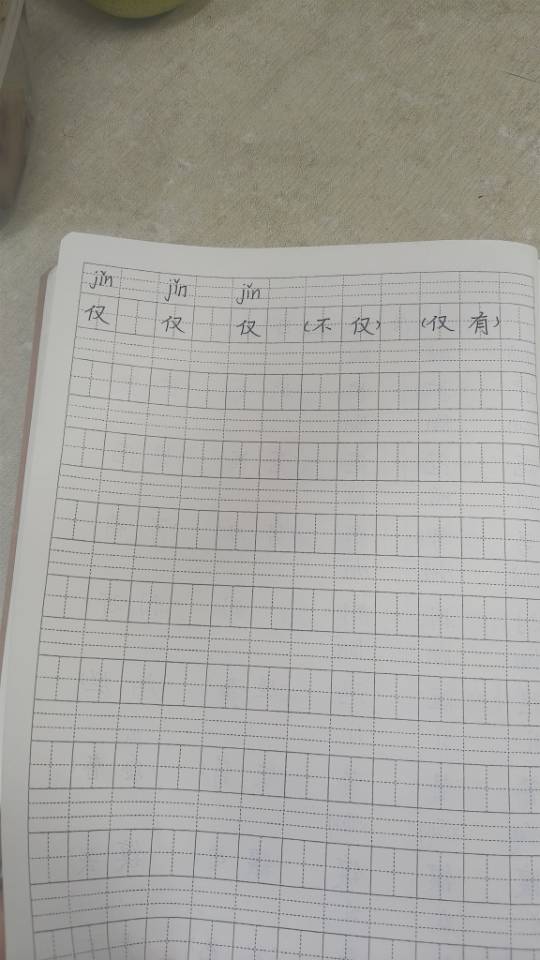 jǐn jǐn jǐn
仅 仅 仅 (不 仅) (仅 有)